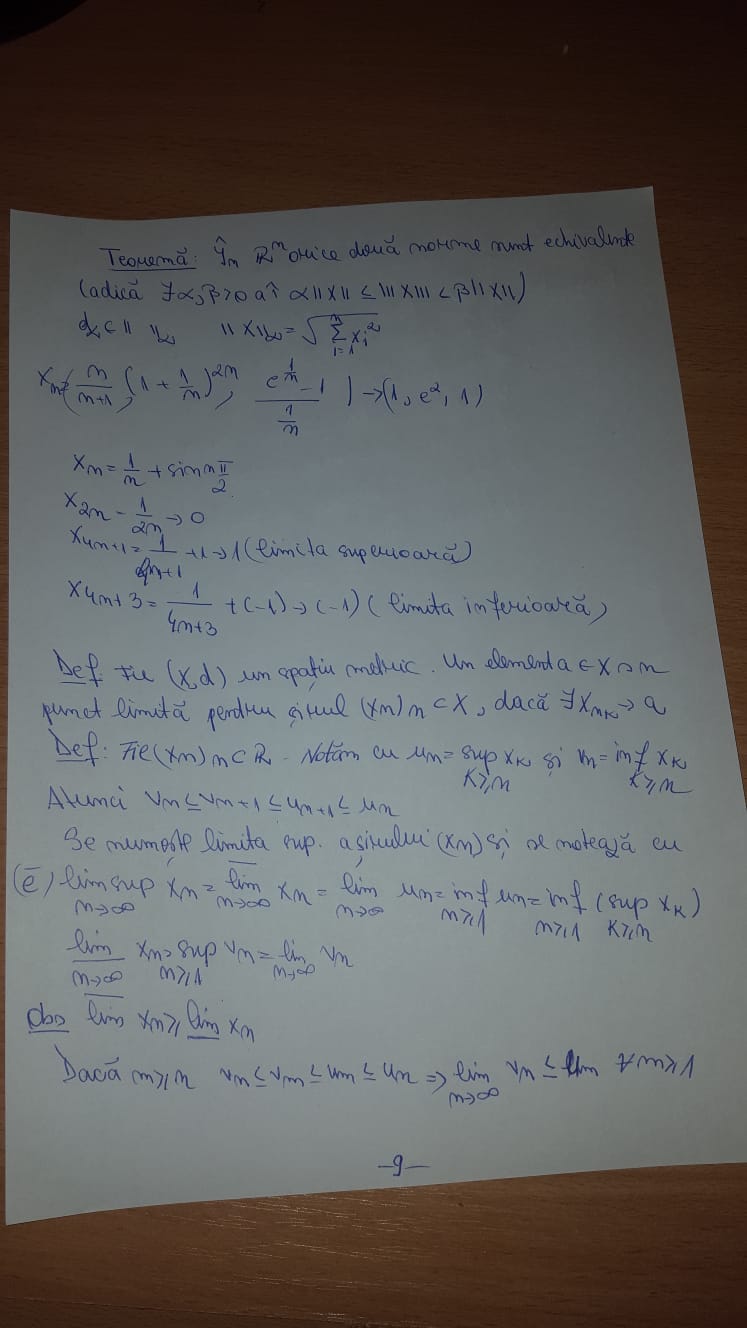 Teoremă: În ℝᵐ orice două norme sunt echivalente
(adică ∃α,β>0 aî α||x|| ≤ |||x||| < β||x||)
||x|| = √(∑_{i=1}^{n} x_i²)
x_n = (n/(n+1), (1+1/n)^{2n}, (e^{1/n}-1)/(1/n)) → (1, e², 1)
x_n = 1/n + sin n π/2
x_{2n} - 1/2n → 0
x_{4n+1} = 1/(4n+1) +1 → 1 (limita superioară)
x_{4n+3} = 1/(4n+3) + (-1) → (-1) (limita inferioară)
Def. Fie (X,d) un spațiu metric. Un element a ∈ X
punct limită pendru șirul (xn)n ⊂ X, dacă ∃x_{n_k} → a
Def: Fie (xn)n ⊂ ℝ. Notăm cu u_n = sup_{k≥n} x_k și v_n = inf_{k≥n} x_k
Atunci v_n ≤ v_{n+1} ≤ u_{n+1} ≤ u_n
Se numește limita sup. a șirului (xn) și se notează cu
lim sup_{n→∞} x_n = \overline{lim}_{n→∞} x_n = lim_{n→∞} u_n = inf_{n≥1} u_n = inf_{n≥1} (sup_{k≥n} x_k)
\underline{lim}_{n→∞} x_n = sup_{n≥1} v_n = lim_{n→∞} v_n
Obs \overline{lim} x_n ≥ \underline{lim} x_n
Dacă m≥n v_n ≤ v_m ≤ u_m ≤ u_n ⇒ lim_{n→∞} v_n ≤ u_m ∀m≥1
-9-